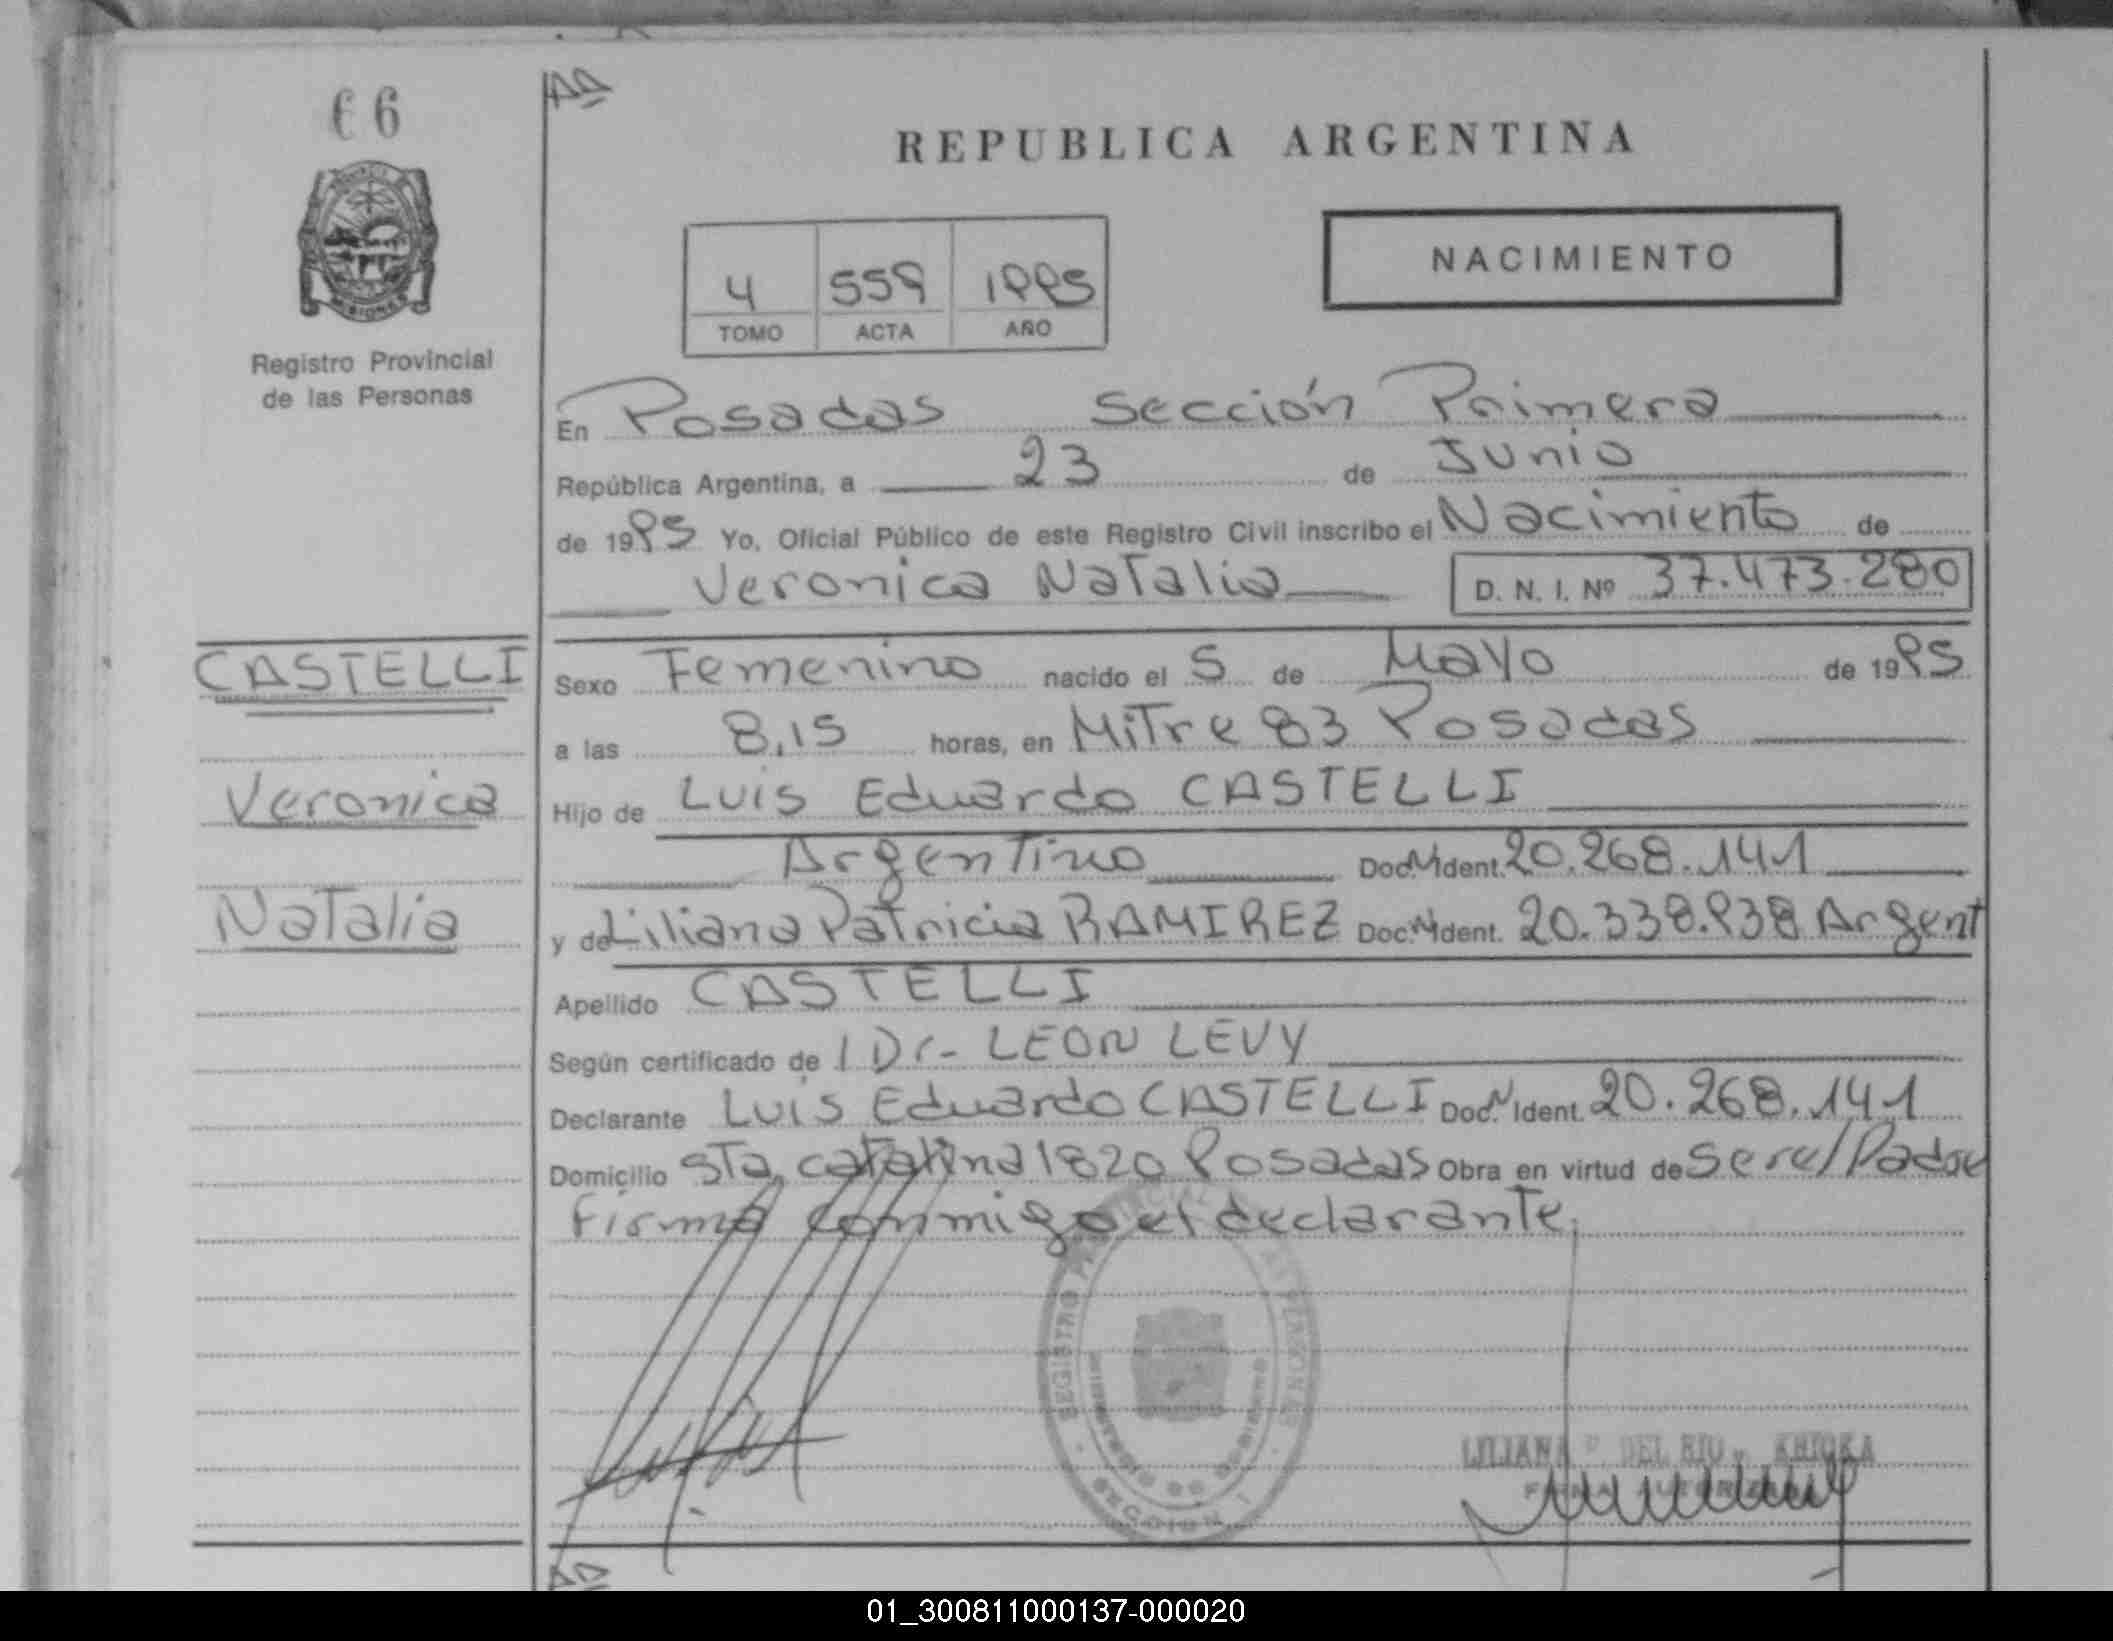 66
REPUBLICA ARGENTINA
NACIMIENTO
4 559 1995
TOMO ACTA AÑO
Registro Provincial
de las Personas
En Posadas Sección Primera
República Argentina, a 23 de Junio
de 1995 Yo, Oficial Público de este Registro Civil inscribo el Nacimiento de
Veronica Natalia D. N. I. Nº 37.473.280
CASTELLI
Veronica
Natalia
Sexo Femenino nacido el 5 de Mayo de 1995
a las 8,15 horas, en Mitre 83 Posadas
Hijo de Luis Eduardo CASTELLI
Argentino Doc. Ident. 20.268.141
y de Liliana Patricia RAMIREZ Doc. Ident. 20.338.938 Argent
Apellido CASTELLI
Según certificado de l Dr- LEON LEVY
Declarante Luis Eduardo CASTELLI Doc. Ident. 20.268.141
Domicilio Sta, catalina 1820 Posadas Obra en virtud de ser el Padre
Firma conmigo el declarante.
REGISTRO PROVINCIAL DE LAS PERSONAS
MINISTERIO DE GOBIERNO
SECCION 1
LILIANA DEL RIO
FIRMA AUTORIZADA
01_300811000137-000020